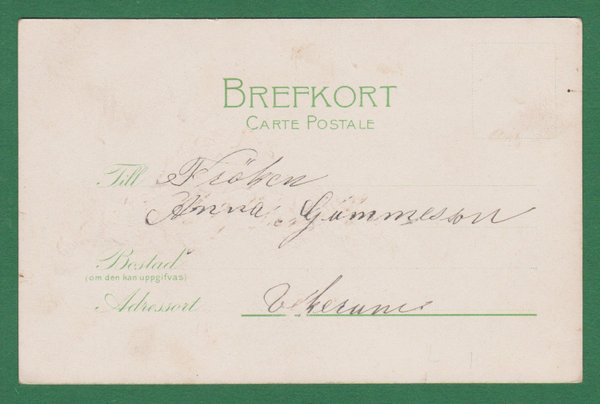 BREFKORT
CARTE POSTALE
Till Fröken
Anna Gummeson
Bostad
(om den kan uppgifvas)
Adressort